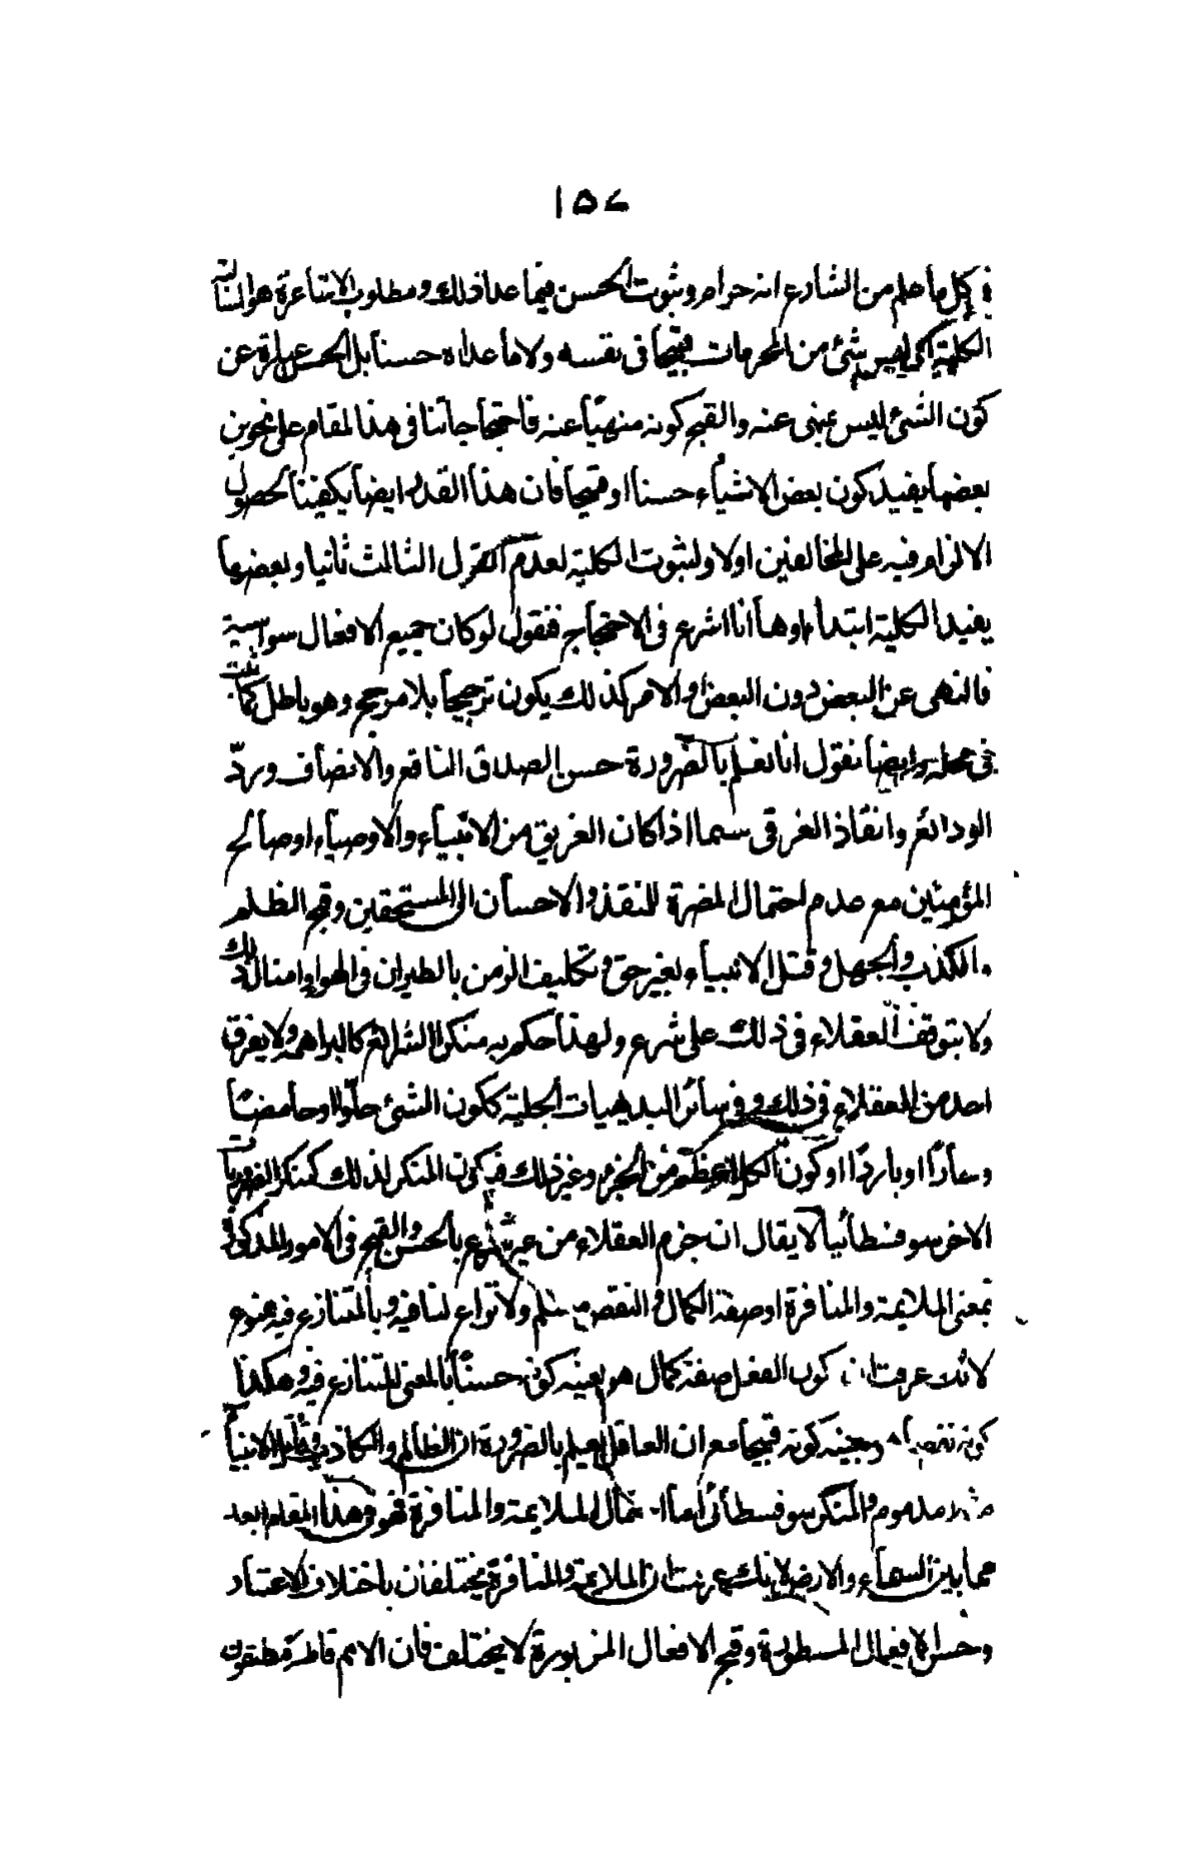 ١٥٤
في كل ما علم من الشارع انه حرام وثبوت الحسن فيما عدا ذلك ومطلوب الاشاعرة هو السالبة
الكلية اي ليس شئ من المحرمات قبيحا في نفسه ولا ما عداه حسنا بل الحسن عبارة عن
كون الشئ ليس بمنهى عنه والقبح كونه منهيا عنه فاحتجاجاتنا في هذا المقام على نحوين
بعضها يفيد كون بعض الاشياء حسنا او قبيحا فان هذا القدر ايضا يكفينا لحصول
الالزام فيه على المخالفين اولا ولثبوت الكلية لعدم القول الثالث ثانيا وبعضها
يفيد الكلية ابتداء وها انا اشرع في الاحتجاج فنقول لو كان جميع الافعال سواسية
فالنهى عن البعض دون البعض والامر كذلك يكون ترجيحا بلا مرجح وهو باطل كما ثبت
في محله وايضا نقول انا نعلم بالضرورة حسن الصدق النافع والانصاف وردّ
الودائع وانقاذ الغرقى سيما اذا كان الغريق من الانبياء والاوصياء او صالح
المؤمنين مع عدم احتمال المضرة للمنقذ والاحسان الى المستحقين وقبح الظلم
والكذب والجهل وقتل الانبياء بغير حق وتكليف الزمن بالطيران في الهواء وامثال ذلك
ولا يتوقف العقلاء في ذلك على شرع ولهذا حكم به منكر الشرائع كالبراهمة ولا يفرق
احد من العقلاء في ذلك وفي سائر البديهيات الجلية ككون الشئ حلوا او حامضا
وحارّا او باردا او كون الكل اعظم من الجزء وغير ذلك فيكون المنكر لذلك كمنكر الضروريات
الاخر سوفسطائيا لا يقال ان جزم العقلاء من غير شرع بالحسن والقبح في الامور المذكورة
بمعنى الملايمة والمنافرة او صفة الكمال والنقص مسلم ولا نزاع لنا فيه وبالمتنازع فيه ممنوع
لانك عرفت ان كون الفعل صفة كمال هو بعينه كونه حسنًا بالمعنى المتنازع فيه وهكذا
كونه نقصا بعينه كونه قبيحا مع ان العاقل يعلم بالضرورة ان الظالم والكاذب وقاتل الانبياء
مذموم والمنكر سوفسطائى اما احتمال الملايمة والمنافرة فهو في هذا المقام ابعد
مما بين السماء والارض لانك عرفت ان الملايمة والمنافرة يختلفان باختلاف الاعتبار
وحسن الافعال المسطورة وقبح الافعال المزبورة لا يختلف فان الامم قاطبة متفقون